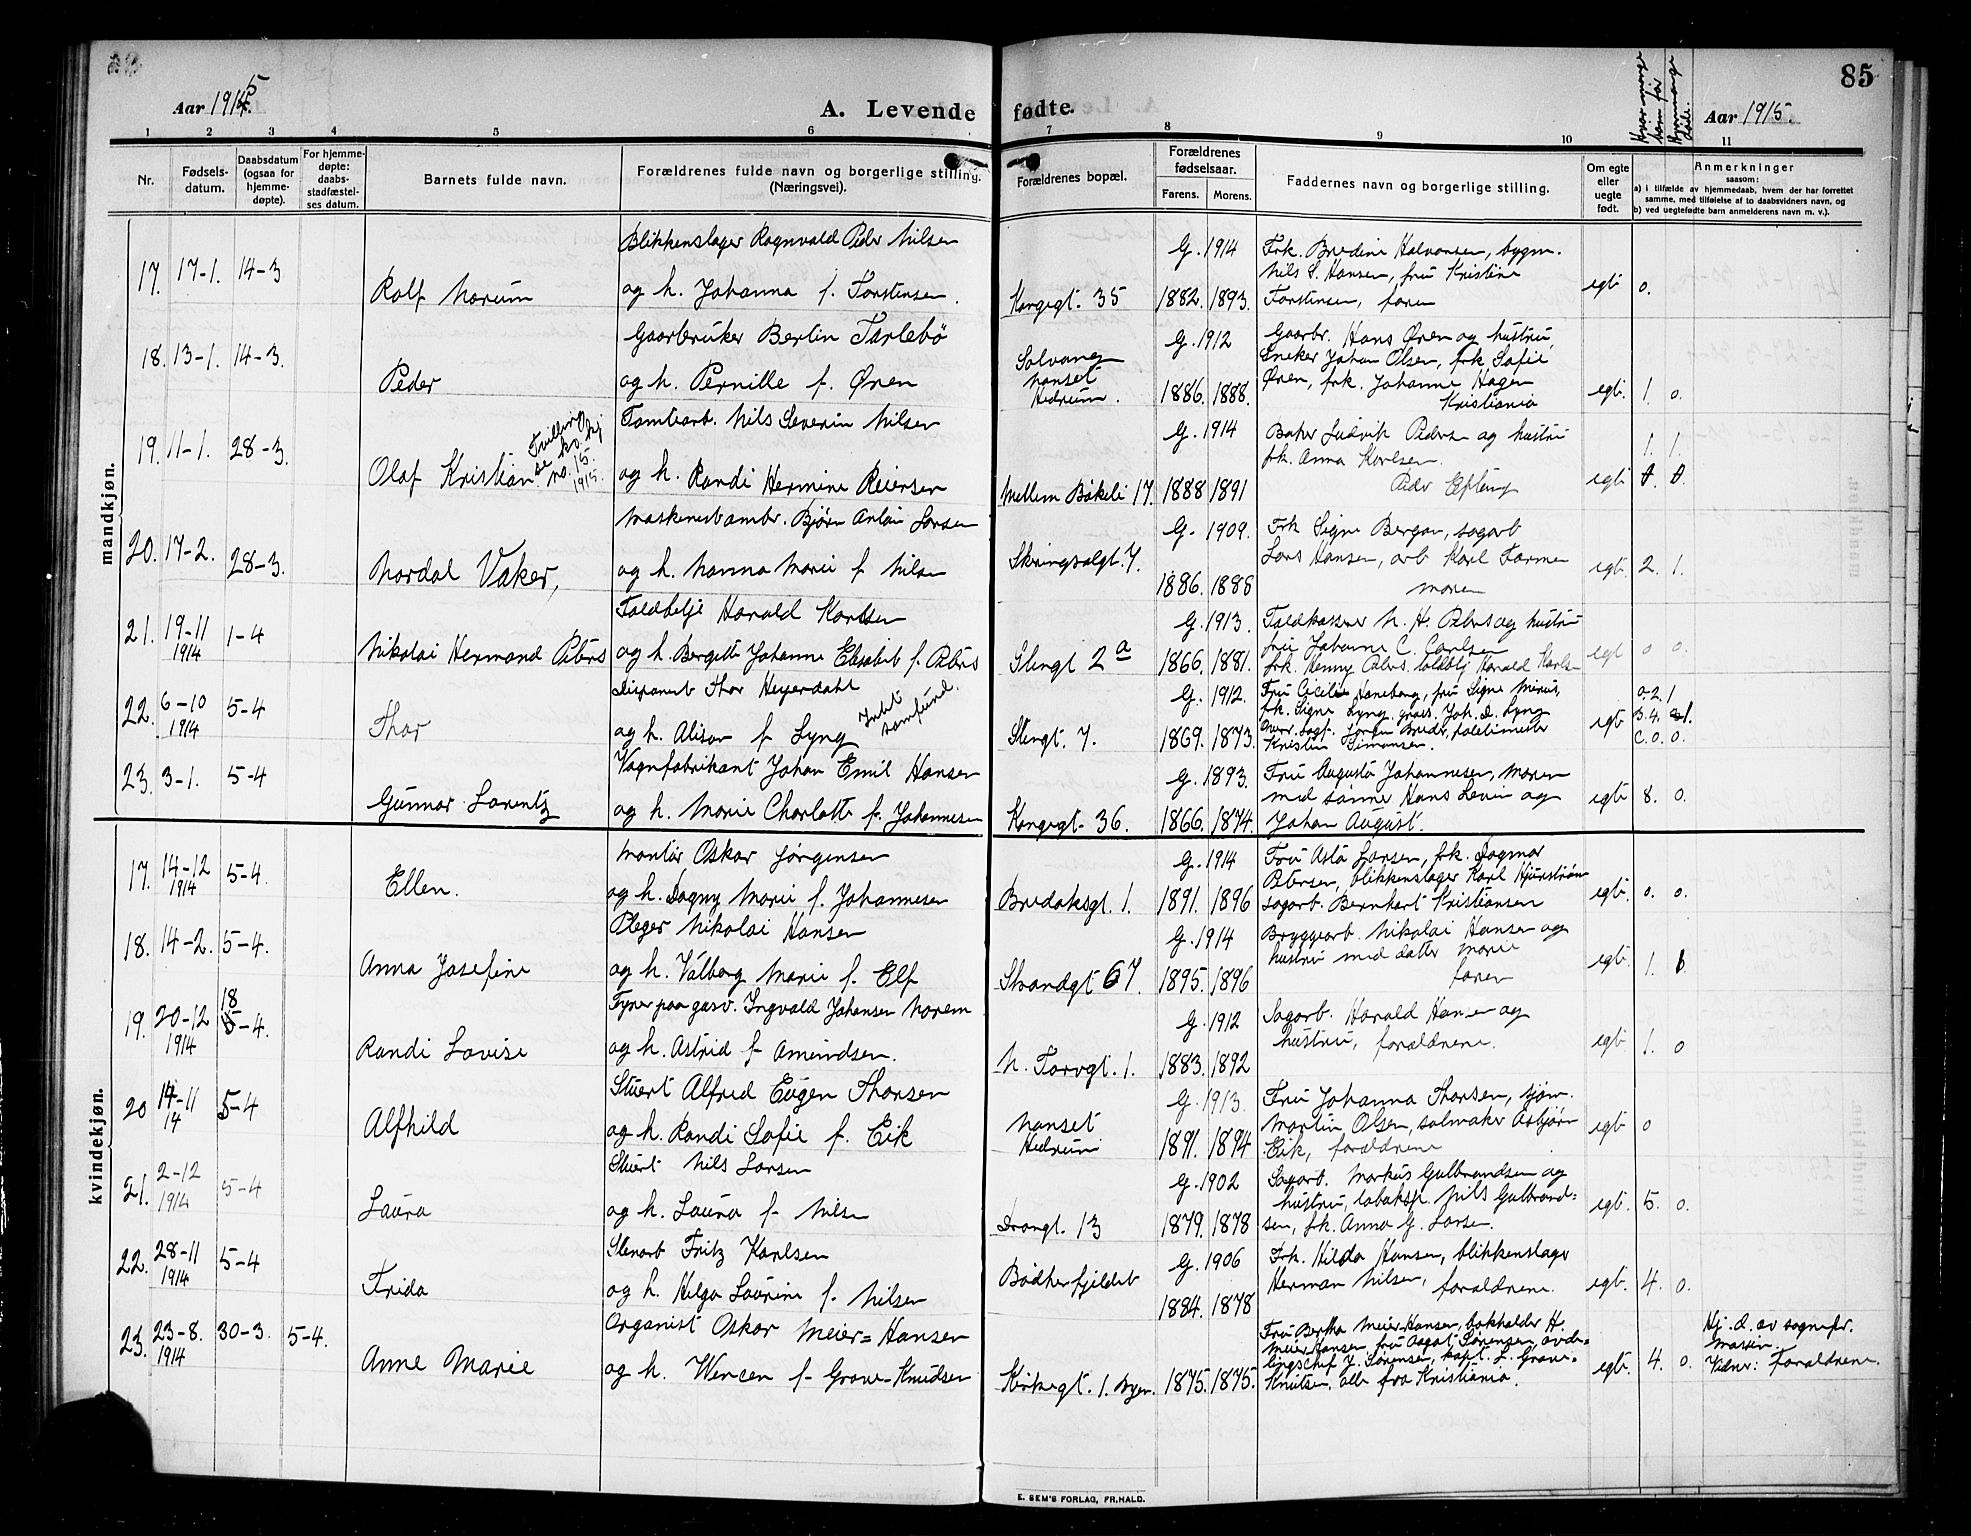 85
Aar 1915.
A. Levende fødte.
Aar 1915.
Hvor mange
barn før
Hjemmenge
døde.
1 2 3 4 5 6 7 8 9 10 11
Nr.
Fødsels-
datum.
Daabsdatum
(ogsaa for
hjemme-
døpte).
For hjemme-
døpte:
daabs-
stadfæstel-
ses datum.
Barnets fulde navn.
Forældrenes fulde navn og borgerlige stilling.
(Næringsvei).
Forældrenes bopæl.
Forældrenes
fødselsaar.
Farens. Morens.
Faddernes navn og borgerlige stilling.
Om egte
eller
uegte
født.
Anmerkninger
saasom:
a) i tilfælde av hjemmedaab, hvem der har forrettet
samme, med tilføielse af to daabsvidners navn, og
b) ved uegtefødte barn anmelderens navn m. v.).
mandkjøn.
17. 17-1. 14-3
Rolf Norum
Blikkenslager Ragnvald Peder Nilsen
og h. Johanna f. Torstensen.
Kongegt. 35
G. 1914
1882. 1893.
Frk. Bredine Halvorsen, bygm.
Nils S. Hansen, fru Kristine
Torstensen, faren
egte 0.
18. 13-1. 14-3.
Peder
Gaarbruker Bertin Farlebø
og h. Pernille f. Øren
Solvang
Nanset
Hedrum.
G. 1912
1886. 1888.
Gaarbr. Hans Øren og hustru,
Sneker Johan Olsen, frk. Sofie
Øren, frk. Johanne Hagen
Kristiania
egte. 1. 0.
19. 11-1. 28-3.
Olaf Kristian
Tvilling
se kv. kj
no. 15.
1915.
Tomtearb. Nils Severin Nilsen
og h. Randi Hermine Reiersen
Mellem Bøkeli 17.
G. 1914
1888 1891
Baker Ludvik Pedersen og hustru
frk. Anna Karlsen.
Peder Efteng
egte 1. 1.
20. 17-2. 28-3.
Nordal Vaker,
Maskinistambr. Bjørn Anton Larsen
og h. Nanna Marie f. Nilsen
Skiringsalgt. 7.
G. 1909.
1886. 1888
Frk Signe Bergan, sagarb
Lars Hansen, arb Karl Farmen
moren
egte. 2. 1.
21. 19-11
1914
1-4
Nikolai Hermand Peters
Toldbetje Harald Karlsen
og h. Bergitte Johanne Elisabet f. Peters
Stengt 2a
G. 1913.
1866. 1881.
Toldkasserer N. H. Peters og hustru
fru Johanne C. Carlsen
frk. Henny Peters. toldbtj Harald Karlsen
egte 0 0.
22. 6-10
1914
5-4
Thor
Disponent Thor Heyerdahl
og h. Alison f Lyng
Intet
samfund.
Stengt. 7.
G. 1912.
1869. 1873.
Fru Cecilie Haneborg, fru Signe Mirus,
frk. Signe Lyng, gros. Joh. D. Lyng
Kristin Simonsen.
egte
a. 2. 1
B. 4. 1.
C. 0. 0.
23. 3-1. 5-4
Gunnar Lorentz
Vognfabrikant Johan Emil Hansen
og h. Marie Charlotte f. Johannesen
Kongegt. 36.
G. 1893.
1866. 1874.
Fru Augusta Johannesen, moren
med sønner Hans Levin og
Johan August.
egte 8. 0.
kvindekjøn.
17. 14-12
1914
5-4.
Ellen.
Montør Oskar Jørgensen
og h. Dagny Marie f. Johannesen
Bredoksgt. 1.
G. 1914
1891. 1896
Fru Asta Larsen, frk. Dagmar
Petersen, blikkenslager Karl Hjurstrøm
sagarb. Bernhart Kristiansen
egte. 0. 0.
18. 14-2. 5-4.
Anna Josefine
Pleger Nikolai Hansen
og h. Valborg Marie f. Elf
Strandgt 67.
G. 1914
1895. 1896
Bryggearb. Nikolai Hansen og
hustru med datter Marie
faren
egte. 1.
19. 20-12
1914
18-4.
Randi Lovise
Fyrer paa gasv. Ingvald Johansen Norem
og h. Astrid f. Amundsen.
N. Torvgt. 1.
G. 1912
1883. 1892
Sagarb. Harald Hansen og
hustru, forældrene.
egte. 1. 0
20 14-11
14
5-4
Alfhild
Stuert Alfred Eugen Thorsen
og h. Randi Sofie f. Eik
Nanset
Hedrum
G. 1913.
1891. 1894
Fru Johanna Thorsen, sjøm.
Martin Olsen, salmaker Asbjørn
Eik, forældrene
egte 0
21. 2-12
1914
5-4
Laura
Stuert Nils Larsen
og h. Laura f. Nilsen
Drangt. 13
G. 1902
1879. 1878
Sagarb. Markus Gulbrandsen og
hustru, tobaksp. Nils Gulbrand-
sen, frk. Anna G. Larsen.
egte. 5. 0.
22. 28-11
1914
5-4
Frida
Stenarb Fritz Karlsen
og h. Helga Laurine f. Nilsen
Bødkerfjeldet
G. 1906
1884. 1878
Frk. Hilda Hansen, blikkenslager
Herman Nilsen, forældrene.
egte. 4. 0.
23. 23-8.
1914
30-3. 5-4.
Anne Marie
Organist Oskar Meier=Hansen
og h. Wencen f. Grove-Knudsen
Kirkegt. 1. Byen.
G.
1875. 1875.
Fru Bertha Meier Hansen, bokholder H.
Meier Hansen, fru Aagot Sørensen, avde-
lingschef J. Sørensen, kapt. L. Grove-
Knutsen, alle fra Kristiania.
egte. 4. 0.
Hj. d. av sognepr.
Martin.
Vidner: Forældrene.
E. SEM'S FORLAG, FR.HALD.